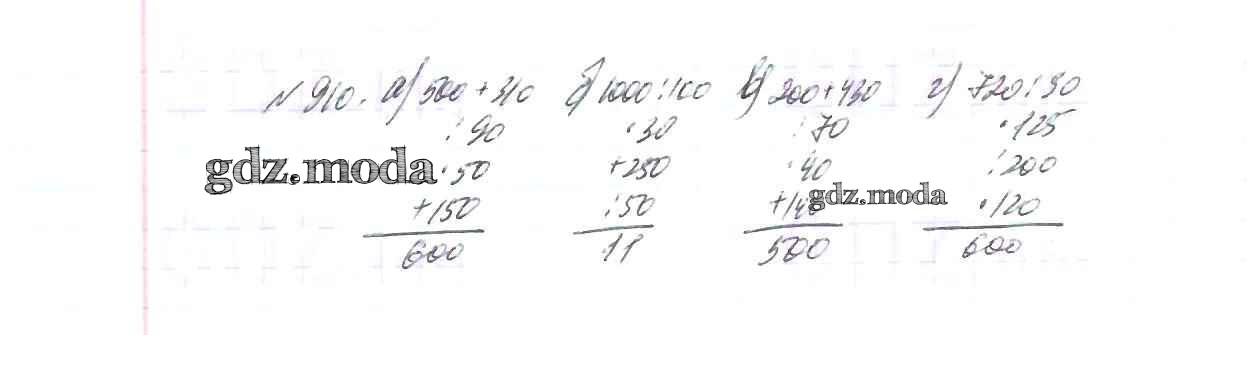 №910. а) 500+310 б) 1000:100 в) 200+430 г) 720:30
:90 ·30 :70 ·125
gdz.moda ·50 +250 ·40 :200
+150 :50 gdz.moda ·120
600 11 500 600